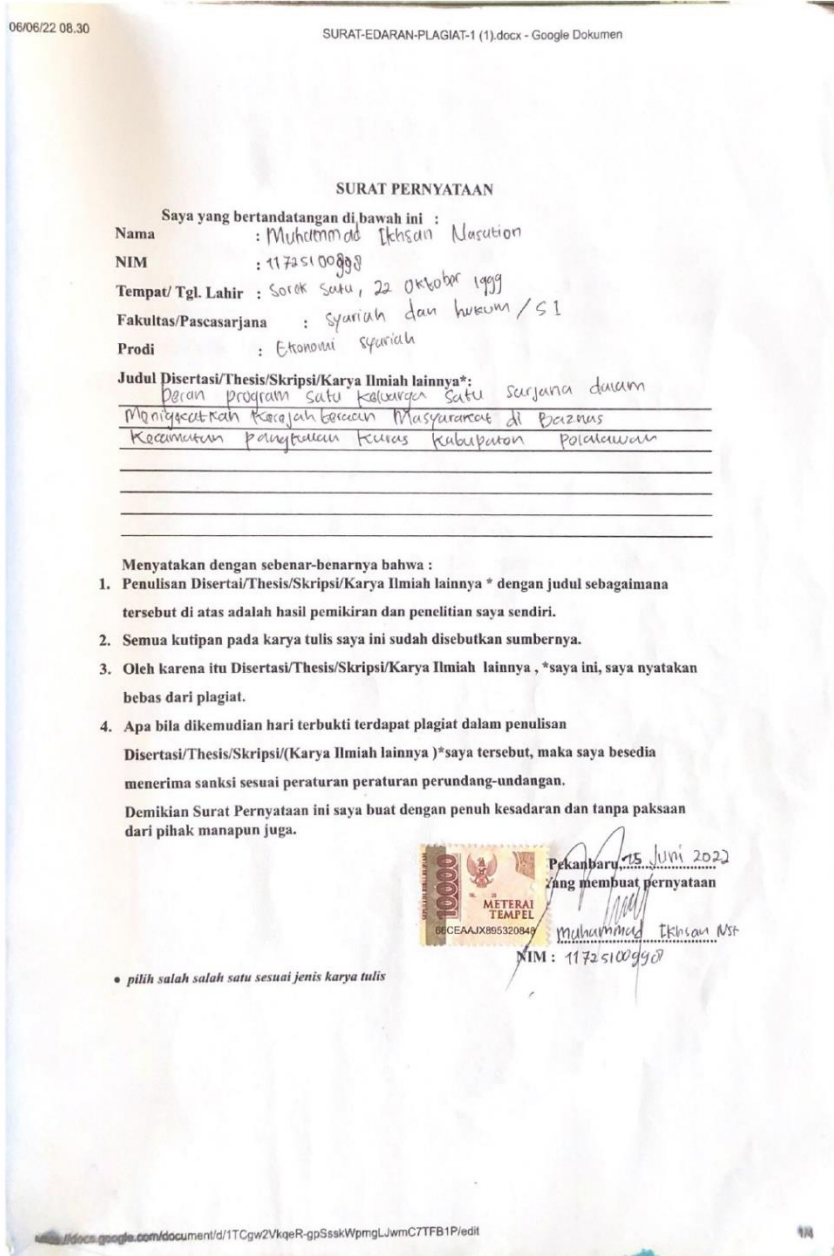 06/06/22 08.30 SURAT-EDARAN-PLAGIAT-1 (1).docx - Google Dokumen
SURAT PERNYATAAN
Saya yang bertandatangan di bawah ini :
Nama : Muhammad Ikhsan Nasution
NIM : 11725100998
Tempat/ Tgl. Lahir : Sorek Satu, 22 Oktober 1999
Fakultas/Pascasarjana : Syariah dan hukum / S1
Prodi : Ekonomi Syariah
Judul Disertasi/Thesis/Skripsi/Karya Ilmiah lainnya*:
Peran program satu keluarga satu sarjana dalam
Menigkatkan Kesejahteraan Masyarakat di Baznas
Kecamatan pangkalan kuras kabupaten Pelalawan
Menyatakan dengan sebenar-benarnya bahwa :
1. Penulisan Disertai/Thesis/Skripsi/Karya Ilmiah lainnya * dengan judul sebagaimana
tersebut di atas adalah hasil pemikiran dan penelitian saya sendiri.
2. Semua kutipan pada karya tulis saya ini sudah disebutkan sumbernya.
3. Oleh karena itu Disertasi/Thesis/Skripsi/Karya Ilmiah lainnya , *saya ini, saya nyatakan
bebas dari plagiat.
4. Apa bila dikemudian hari terbukti terdapat plagiat dalam penulisan
Disertasi/Thesis/Skripsi/(Karya Ilmiah lainnya )*saya tersebut, maka saya besedia
menerima sanksi sesuai peraturan peraturan perundang-undangan.
Demikian Surat Pernyataan ini saya buat dengan penuh kesadaran dan tanpa paksaan
dari pihak manapun juga.
Pekanbaru, 15 Juni 2022
Yang membuat pernyataan
10000
METERAI
TEMPEL
66CEAAJX895320848
Muhammad Ikhsan Nst
NIM : 11725100998
• pilih salah salah satu sesuai jenis karya tulis
https://docs.google.com/document/d/1TCgw2VkqeR-gpSsskWpmgLJwmC7TFB1P/edit 1/4